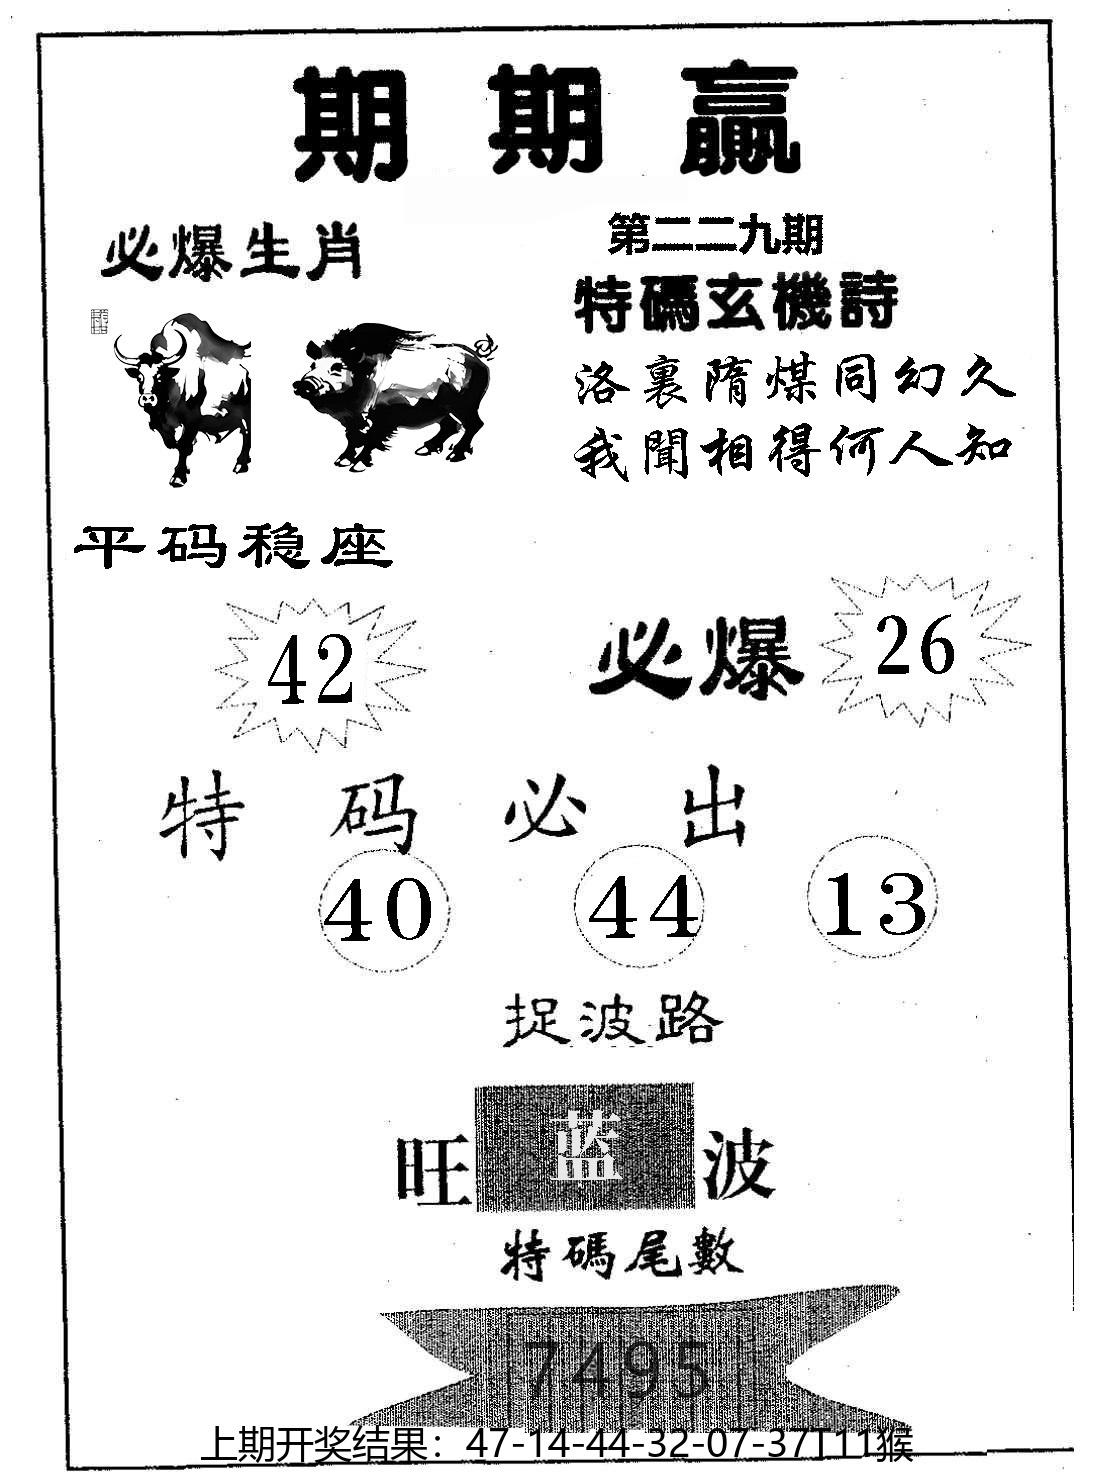 期期贏
必爆生肖
第二二九期
特碼玄機詩
洛裏隋煤同幻久
我聞相得何人知
平码稳座
42
必爆
26
特码必出
40 44 13
捉波路
旺蓝波
特碼尾數
7495
上期开奖结果：47-14-44-32-07-37T11猴